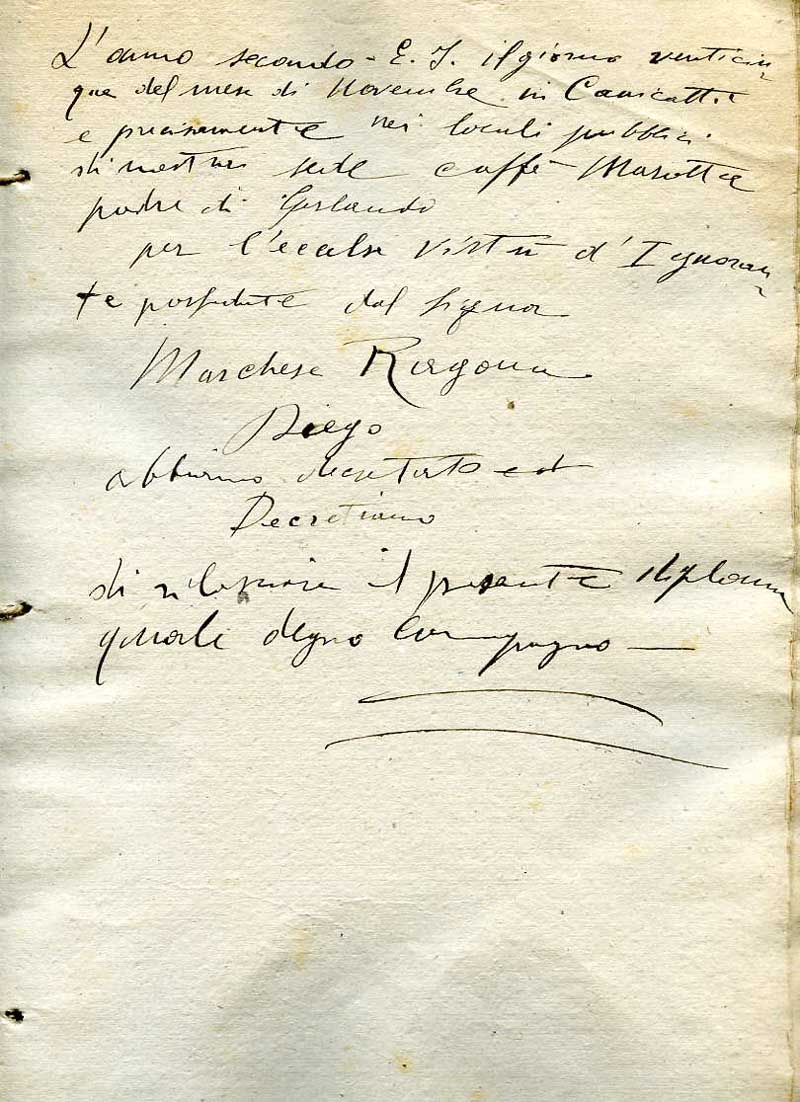 L'anno secondo - E. I. il giorno venticin
que del mese di Novembre in Canicattì
e precisamente nei locali pubblici
di nostra sede caffè Marotta
padre di Gerlando
per l'eccelse virtù d'Ignoran
te possedute dal Signor
Marchese Ragona
Diego
abbiamo decretato ed
Decretiamo
di rilasciare il presente diploma
quale degno Compagno —